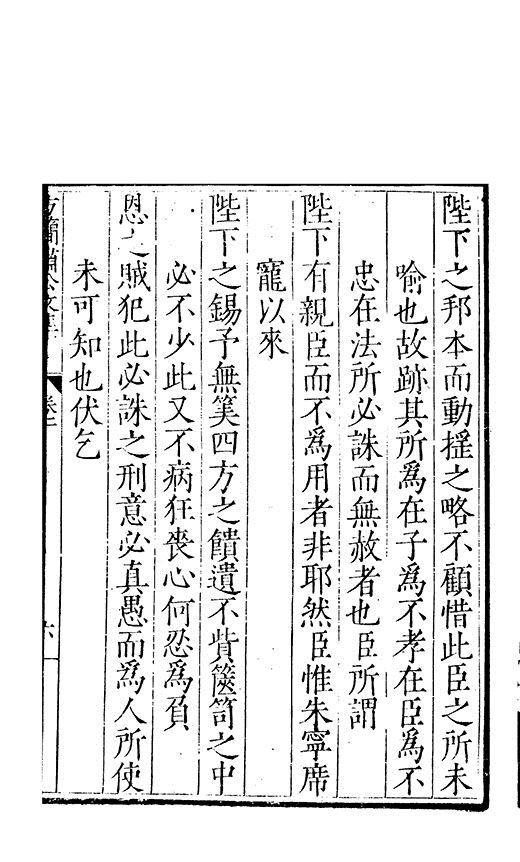 陛下之邦本而動揺之略不顧惜此臣之所未
喻也故跡其所爲在子爲不孝在臣爲不
忠在法所必誅而無赦者也臣所謂
陛下有親臣而不爲用者非耶然臣惟朱寧席
寵以來
陛下之錫予無筭四方之饋遺不貲篋笥之中
必不少此又不病狂喪心何忍爲負
恩之賊犯此必誅之刑意必真愚而爲人所使
未可知也伏乞
方簡肅公文集
六